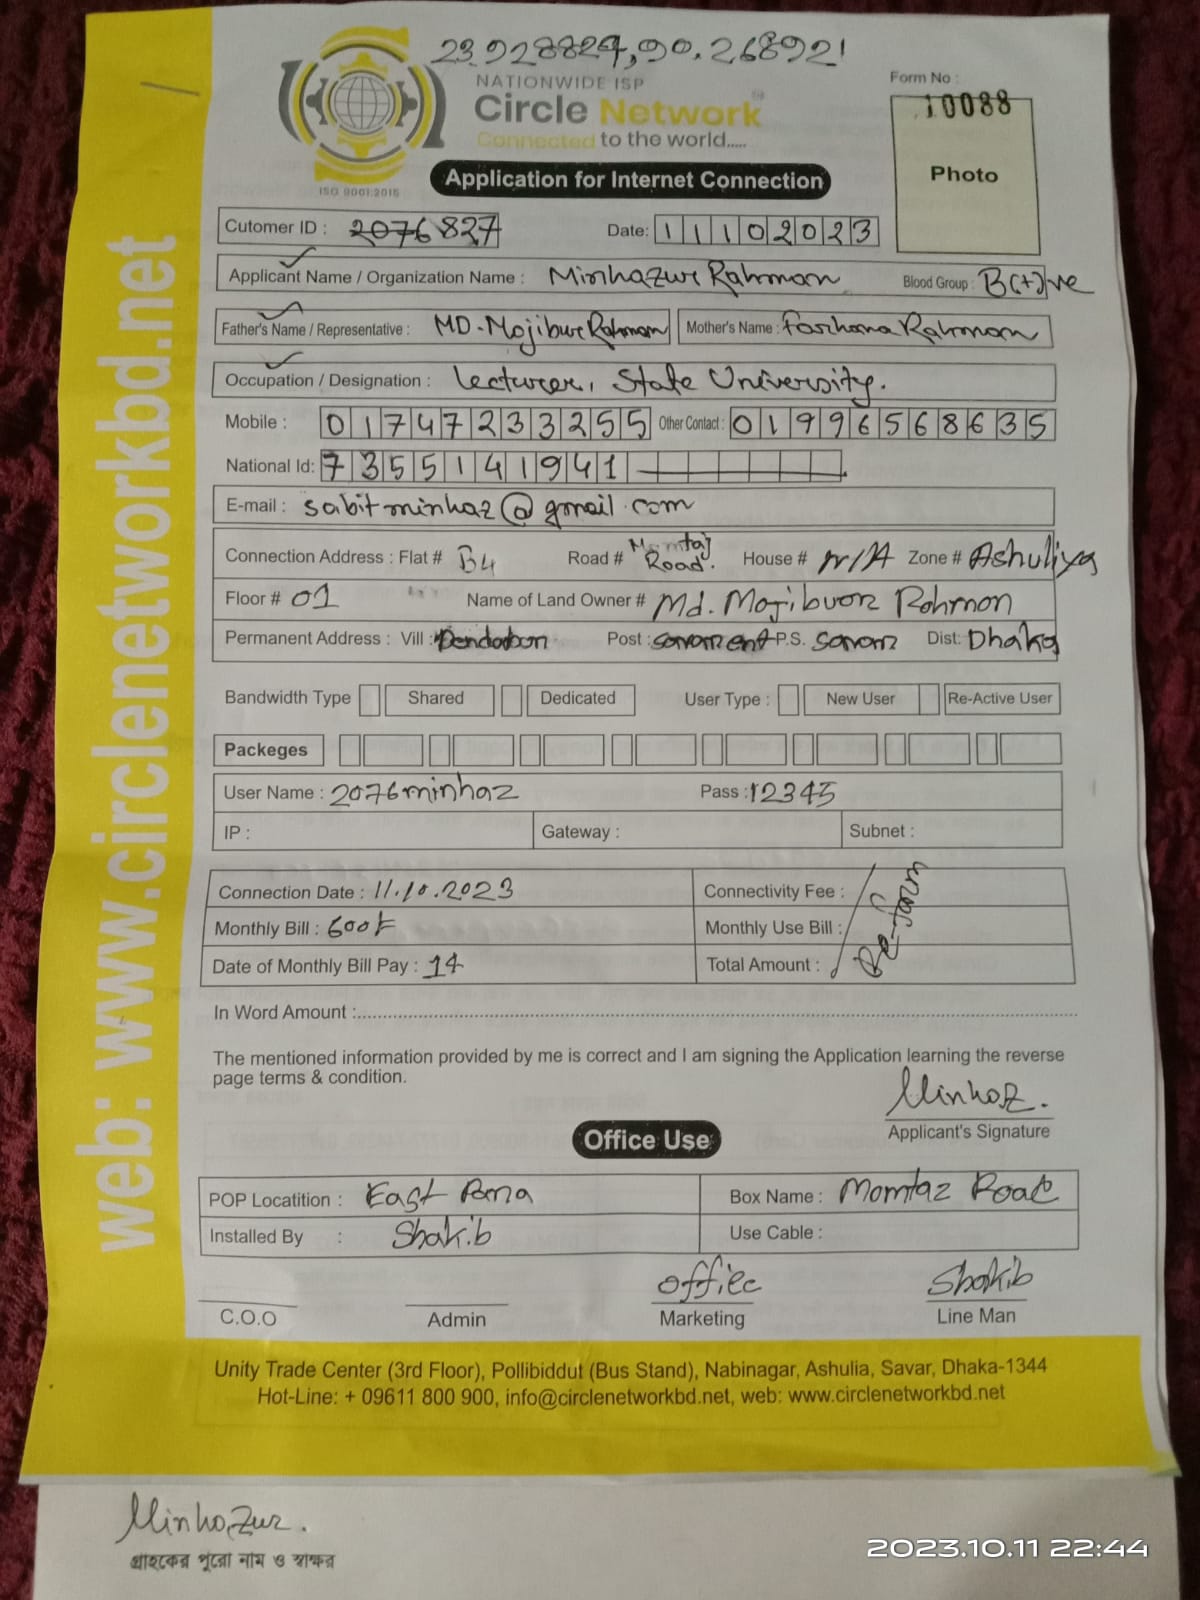 23.928829,90.268921
NATIONWIDE ISP
Circle Network
Connected to the world.....
ISO 9001:2015
Form No :
10088
Photo
Application for Internet Connection
web: www.circlenetworkbd.net
Cutomer ID : 2076827 Date: 11102023
Applicant Name / Organization Name : Minhazur Rahman Blood Group : B(+)ve
Father's Name / Representative : MD. Mojibur Rahman Mother's Name : Farhana Rahman
Occupation / Designation : Lecturer, State University.
Mobile : 01747233255 Other Contact : 01996568635
National Id: 7355141941
E-mail : sabitminhaz@gmail.com
Connection Address : Flat # B4 Road # Momtaj Road. House # N/A Zone # Ashuliya
Floor # 01 Name of Land Owner # Md. Mojibuor Rohmon
Permanent Address : Vill : Post : P.S. Savar Dist: Dhaka
Bandwidth Type Shared Dedicated User Type : New User Re-Active User
Packeges
User Name : 2076minhaz Pass : 12345
IP : Gateway : Subnet :
Connection Date : 11.10.2023 Connectivity Fee :
Monthly Bill : 600 Monthly Use Bill :
Date of Monthly Bill Pay : 14 Total Amount :
In Word Amount :
The mentioned information provided by me is correct and I am signing the Application learning the reverse
page terms & condition.
Minhaz.
Applicant's Signature
Office Use
POP Locatition : East Box Name : Momtaz Road
Installed By : Shakib Use Cable :
offiec Shakib
C.O.O Admin Marketing Line Man
Unity Trade Center (3rd Floor), Pollibiddut (Bus Stand), Nabinagar, Ashulia, Savar, Dhaka-1344
Hot-Line: + 09611 800 900, info@circlenetworkbd.net, web: www.circlenetworkbd.net
Minhazur.
গ্রাহকের পুরো নাম ও স্বাক্ষর
2023.10.11 22:44